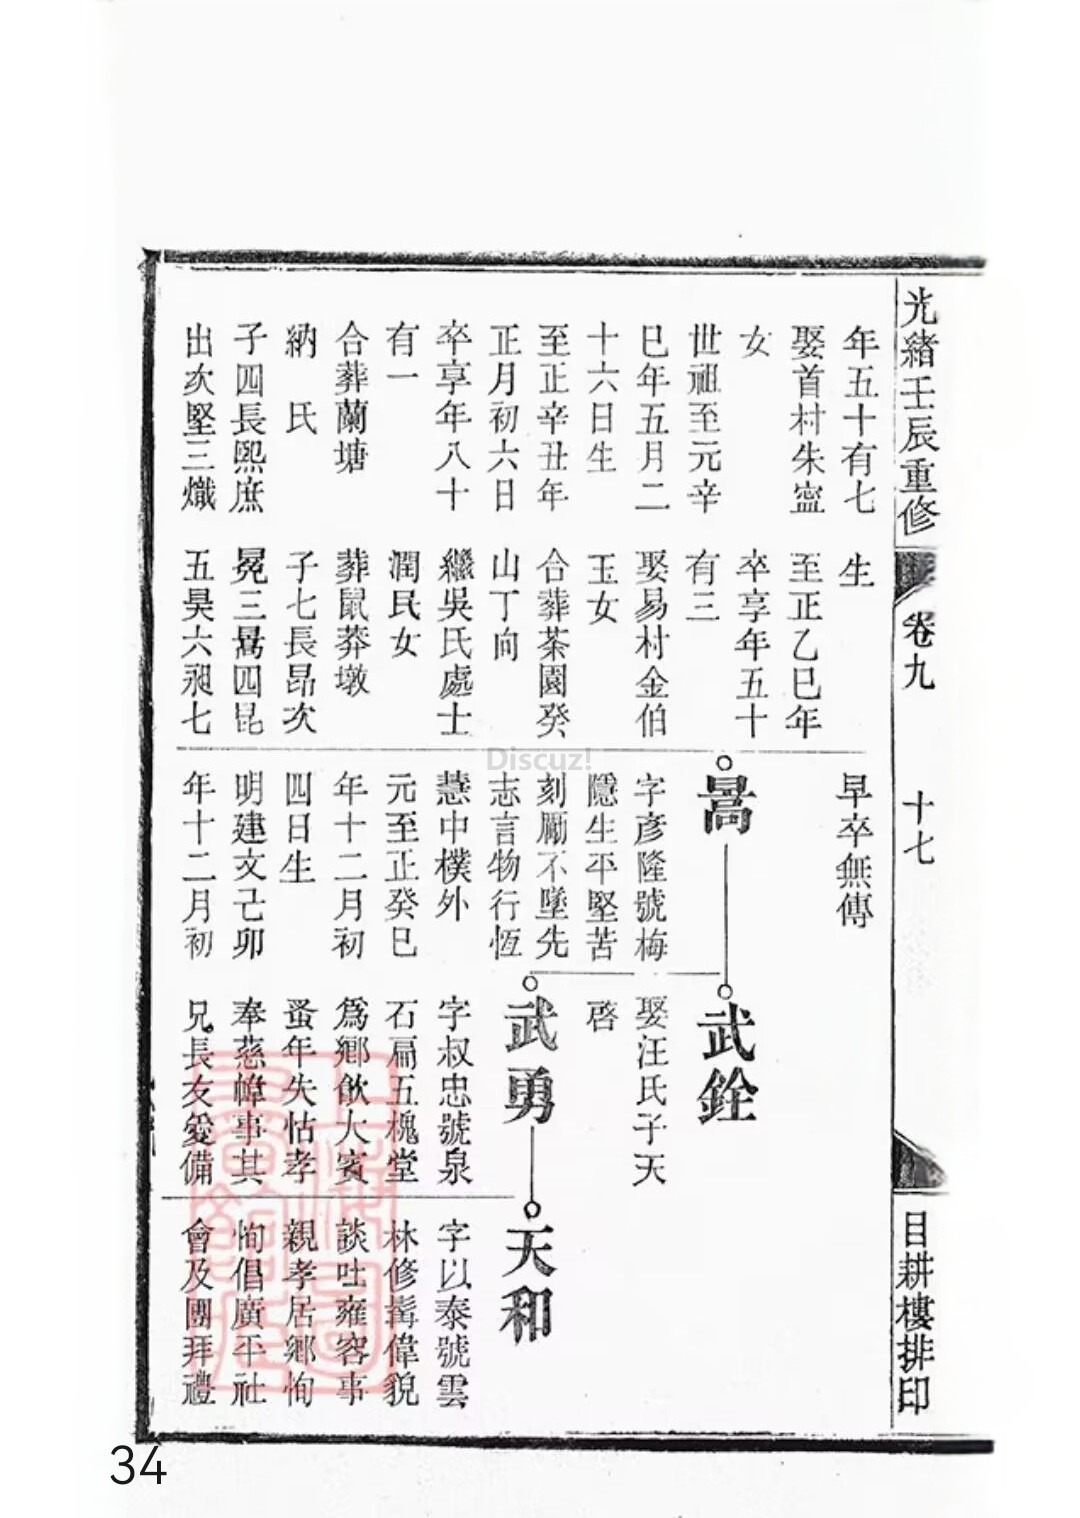 光緒壬辰重修
卷九
十七
目耕樓排印
年五十有七
娶首村朱寍
女
世祖至元辛
巳年五月二
十六日生
至正辛丑年
正月初六日
卒享年八十
有一
合葬蘭塘
納氏
子四長熙庶
出次堅三熾
生
至正乙巳年
卒享年五十
有三
娶易村金伯
玉女
合葬茶園癸
山丁向
繼吳氏處士
潤民女
葬鼠莽墩
子七長昂次
冕三暠四昆
五昊六昶七
早卒無傳
暠
字彥隆號梅
隱生平堅苦
刻勵不墜先
志言物行恆
慧中樸外
元至正癸巳
年十二月初
四日生
明建文己卯
年十二月初
武銓
娶汪氏子天
啓
武勇
字叔忠號泉
石扁五槐堂
爲鄉飲大賓
蚤年失怙孝
奉慈幃事其
兄長友愛備
天和
字以泰號雲
林修髯偉貌
談吐雍容事
親孝居鄉恂
恂倡廣平社
會及團拜禮
Discuz!
34